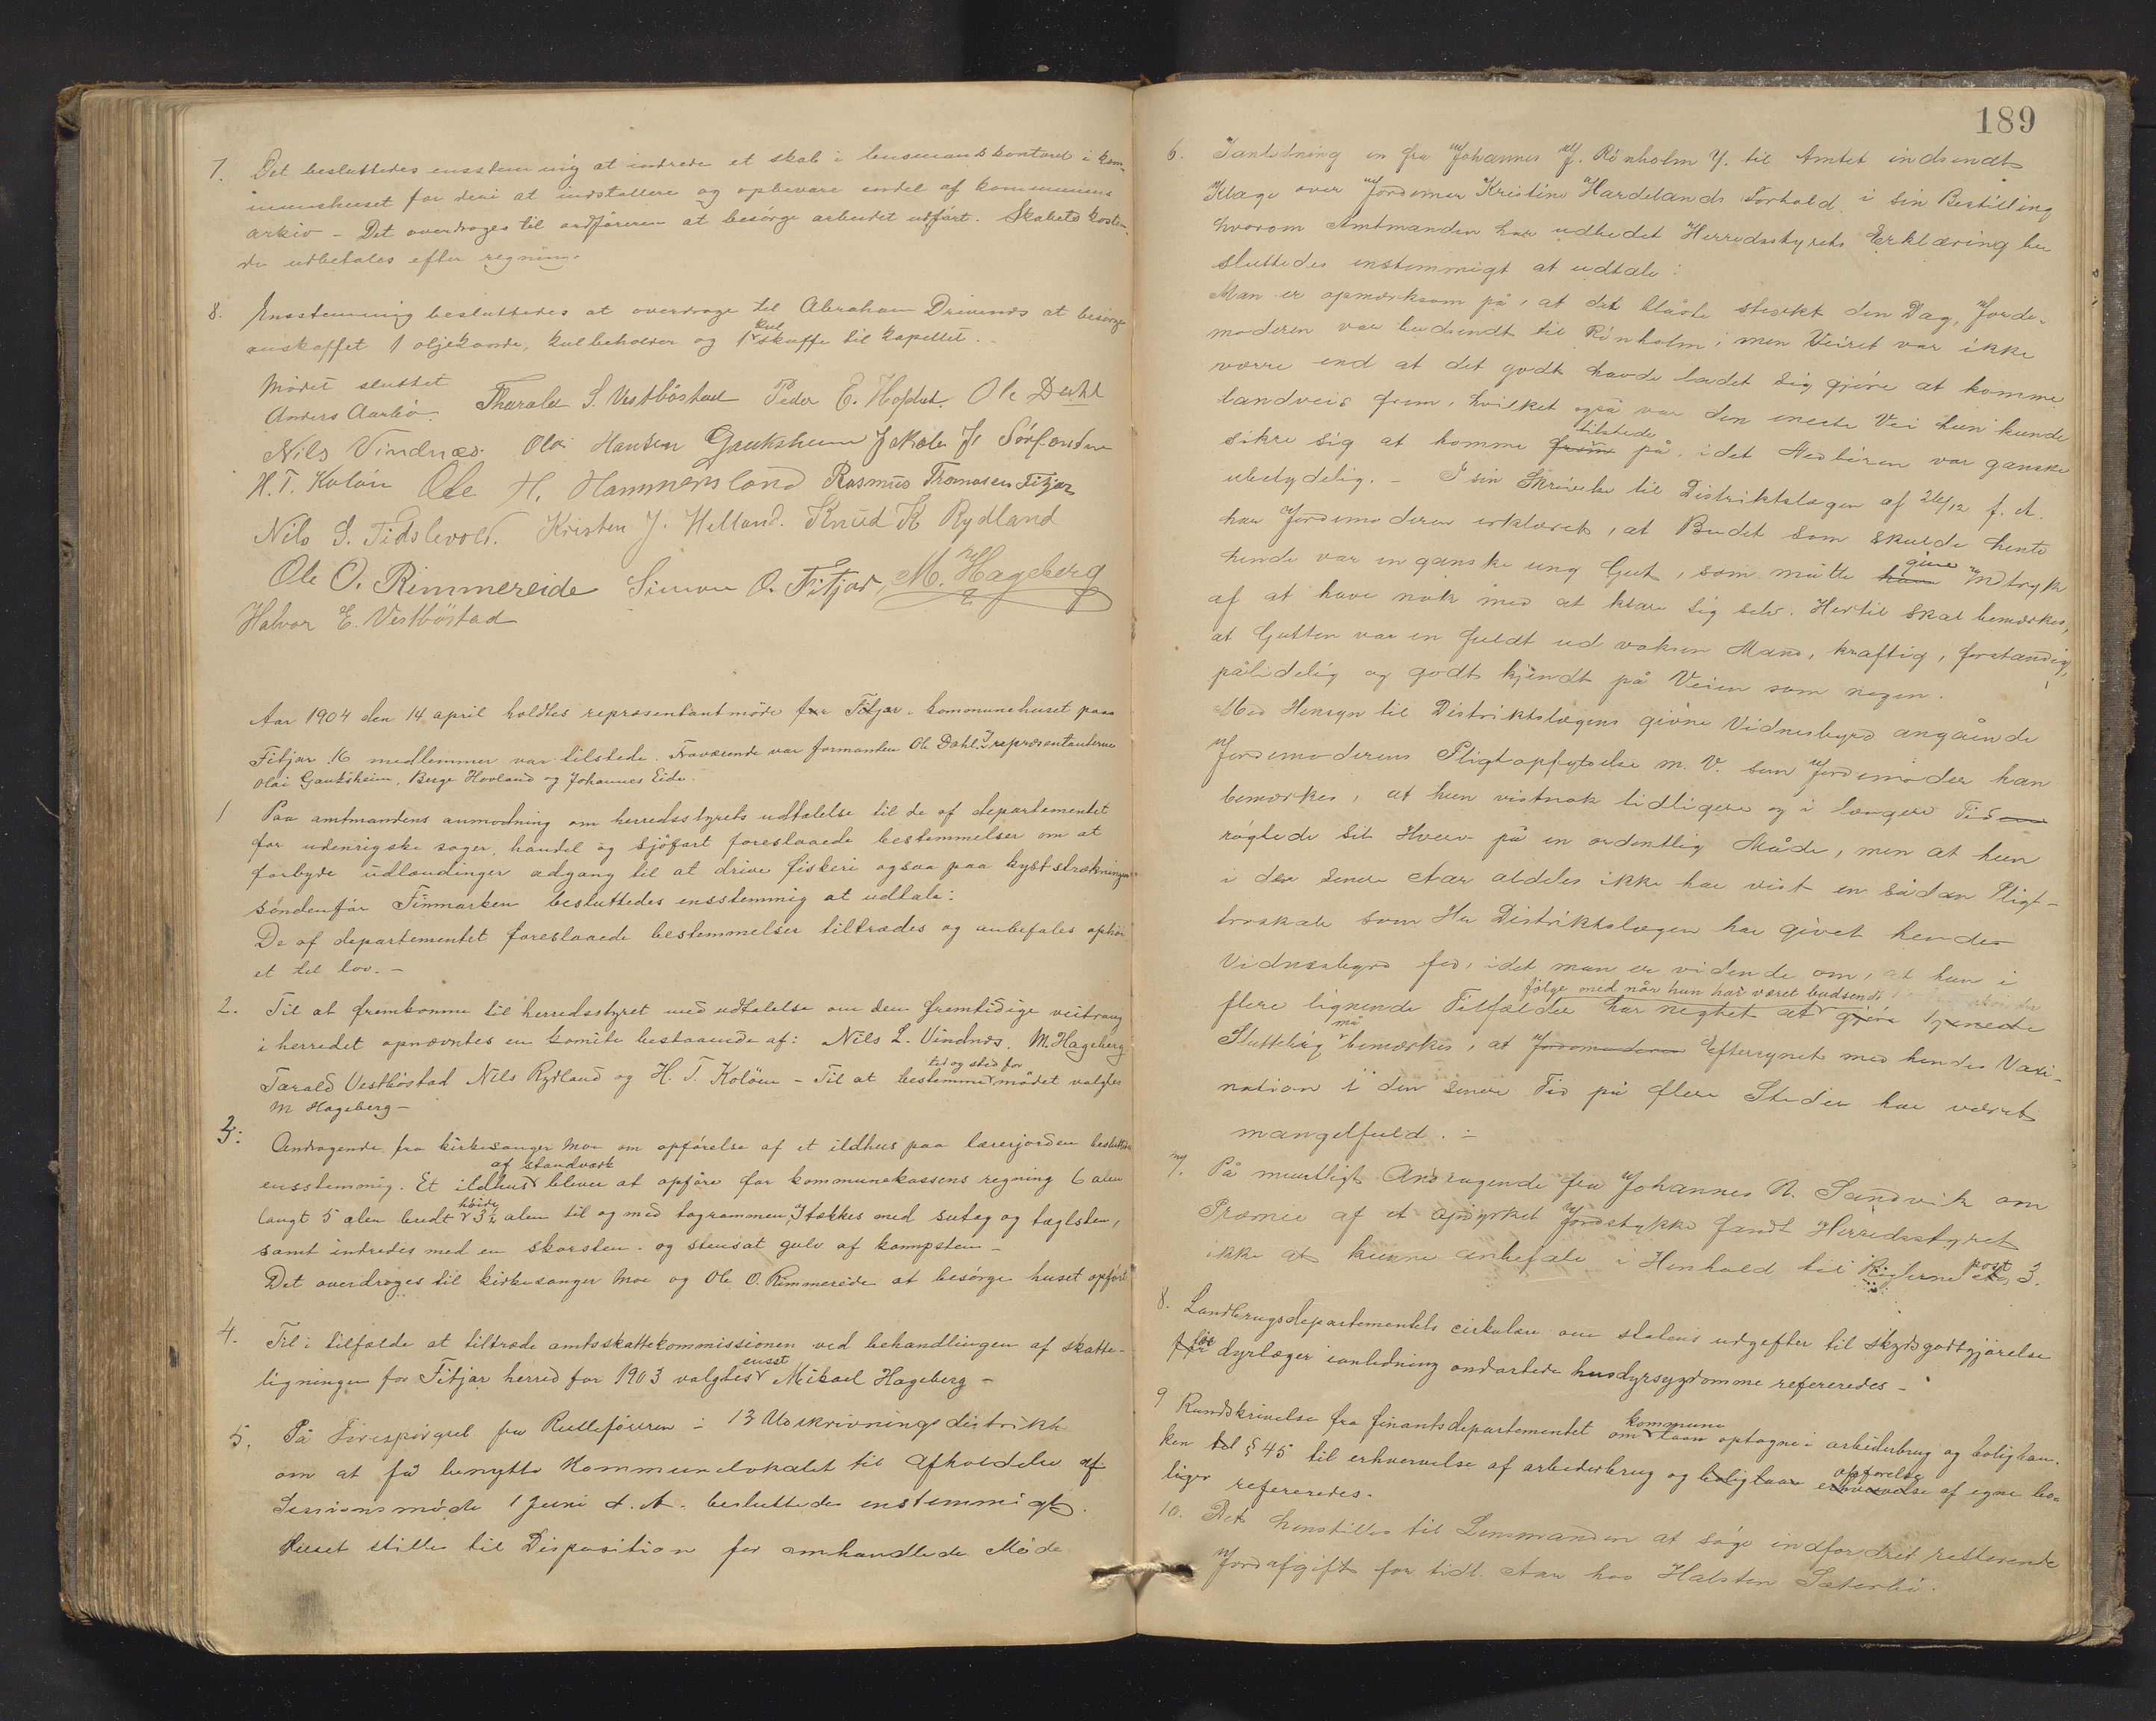 7. Det besluttedes ensstemmig at indrede et skab i lensmandskontoret i kom-
munehuset for deri at installere og opbevare endel af kommunens
arkiv – Det overdroges til ordføreren at besørge arbeidet udført. Skabets kosten-
de udbetales efter regning.
8. Ensstemmig besluttedes at overdrage til Abraham Drivenes at besørge
kul
anskaffet 1 oljekande, kulbeholder og 1 skuffe til kapellet. –
Mødet sluttet
Anders Aarbø Tharald S. Vestbøstad Peder E. Hoplet. Ole Dahl
Nils Vindnæs. Olai Hansen Gauksheim Jakob J. Sørfonden
H. T. Koløen Ole H. Hammersland Rasmus Thomasen Fitjar
Nils S. Tislevold. Kristen J. Helland. Knud K Rydland
Ole O. Rimmereide Simon O. Fitjar, M. Hageberg
Halvor E. Vestbøstad
Aar 1904 den 14 april holdtes repræsentantmøde for Fitjar i kommunehuset paa
Fitjar. 16 medlemmer var tilstede. Fraværende var formanden Ole Dahl, repræsentanterne
Olai Gauksheim, Berge Hovland og Johannes Eide.
1 Paa amtmandens anmodning om herredsstyrets udtalelse til de af departementet
for udenrigske sager, handel og sjøfart foreslaaede bestemmelser om at
forbyde udlændinger adgang til at drive fiskeri ogsaa paa kyststrækningen
søndenfor Finmarken besluttedes ensstemmig at udtale:
De af departementet foreslaaede bestemmelser tiltrædes og anbefales ophøi
et til lov. –
2. Til at fremkomme til herredsstyret med udtalelse om den fremtidige veitrang
i herredet opnævntes en komite bestaaende af: Nils L. Vindnæs, M. Hageberg
tid og sted for
Tarald Vestbøstad Nils Rydland og H. T. Koløen – Til at bestemme mødet valgtes
M Hageberg –
3: Andragende fra kirkesanger Moe om opførelse af et ildhus paa lærerjorden besluttedes
af standværk
ensstemmig. Et ildhus bliver at opføre for kommunekassens regning 6 alen
høide
langt 5 alen bredt 3½ alen til og med tagrammen, tækkes med sutag og taglsten,
samt indredes med en skorsten og stensat gulv af kampsten –
Det overdroges til kirkesanger Moe og Ole O. Rimmereide at besørge huset opført
4. Til i tilfælde at tiltræde amtsskattekommissionen ved behandlingen af skatte-
ensst
ligningen for Fitjar herred for 1903 valgtes Mikael Hageberg –
5. På Forespørgsel fra Rulleføreren i 13 Udskrivningsdistrikt
om at få benytte Kommunelokalet til Afholdelse af
Sessionsmøde 1 Juni d. A. besluttedes enstemmigt.
Huset stilles til Disposition for omhandlede Møde
189
6. Ianledning en fra Johannes J. Rønholm Y. til Amtet indsendt
Klage over Jordemor Kristine Hardelands Forhold i sin Bestilling
hvorom Amtmanden har udbedet Herredsstyrets Erklæring be
sluttedes enstemmigt at udtale:
Man er opmærksom på, at det blåste stærkt den Dag, Jorde-
moderen var budsendt til Rønholm; men Veiret var ikke
værre end at det godt havde ladet sig gjøre at komme
landveis frem, hvilket også var den eneste Vei hun kunde
tilstede
sikre sig at komme frem på, idet Nedbøren var ganske
ubetydelig. – I sin Skrivelse til Distriktslægen af 26/12 f. A.
har Jordemoderen erklæret, at Budet som skulde hente
give
hende var en ganske ung Gut, som måtte have Indtryk
af at have nok med at klare sig selv. Hertil skal bemærkes,
at Gutten var en fuldt ud voksen Mand, kraftig, forstandig,
pålidelig og godt kjendt på Veien som nogen.
Med Hensyn til Distriktslægens givne Vidnesbyrd angående
Jordemoderens Pligtopfyldelse m. V. som Jordemoder kan
bemærkes, at hun vistnok tidligere og i længere Tid
røgtede sit Hverv på en ordentlig Måde, men at hun
i den senere Aar aldeles ikke har vist en sådan Pligt-
troskab som Hr Distriktslægen har givet hende
Vidnesbyrd for, idet man er vidende om, at hun i
følge med når hun har været budsendt
flere lignende Tilfælder har negtet at gjøre tjeneste
må
Sluttelig bemærkes, at Jordemoderen Eftersynet med hendes Vaxi-
nation i den senere Tid på flere Steder har været
mangelfuld. –
7. På muntligt Andragende fra Johannes N. Sandvik om
Præmie af et opdyrket Jordstykke fandt Herredsstyret
post
ikke at kunne anbefale i Henhold til Reglerne 3.
8. Landbrugsdepartementets cirkulære om statens udgifter til skydsgodtgjørelse
for
for dyrlæger ianledning ondartede husdyrsygdomme refereredes –
9 Rundskrivelse fra finantsdepartementet om
kommune
laan optagne i arbeiderbrug og boligban.
ken § 45 til erhvervelse af arbeiderbrug og boliglaan
opførelse
erhvervelse af egne bo-
liger refereredes.
10. Det henstilles til Lensmanden at søge indfordret resterende
Jordafgift for tidl. Aar hos Halsten Sæterbø.